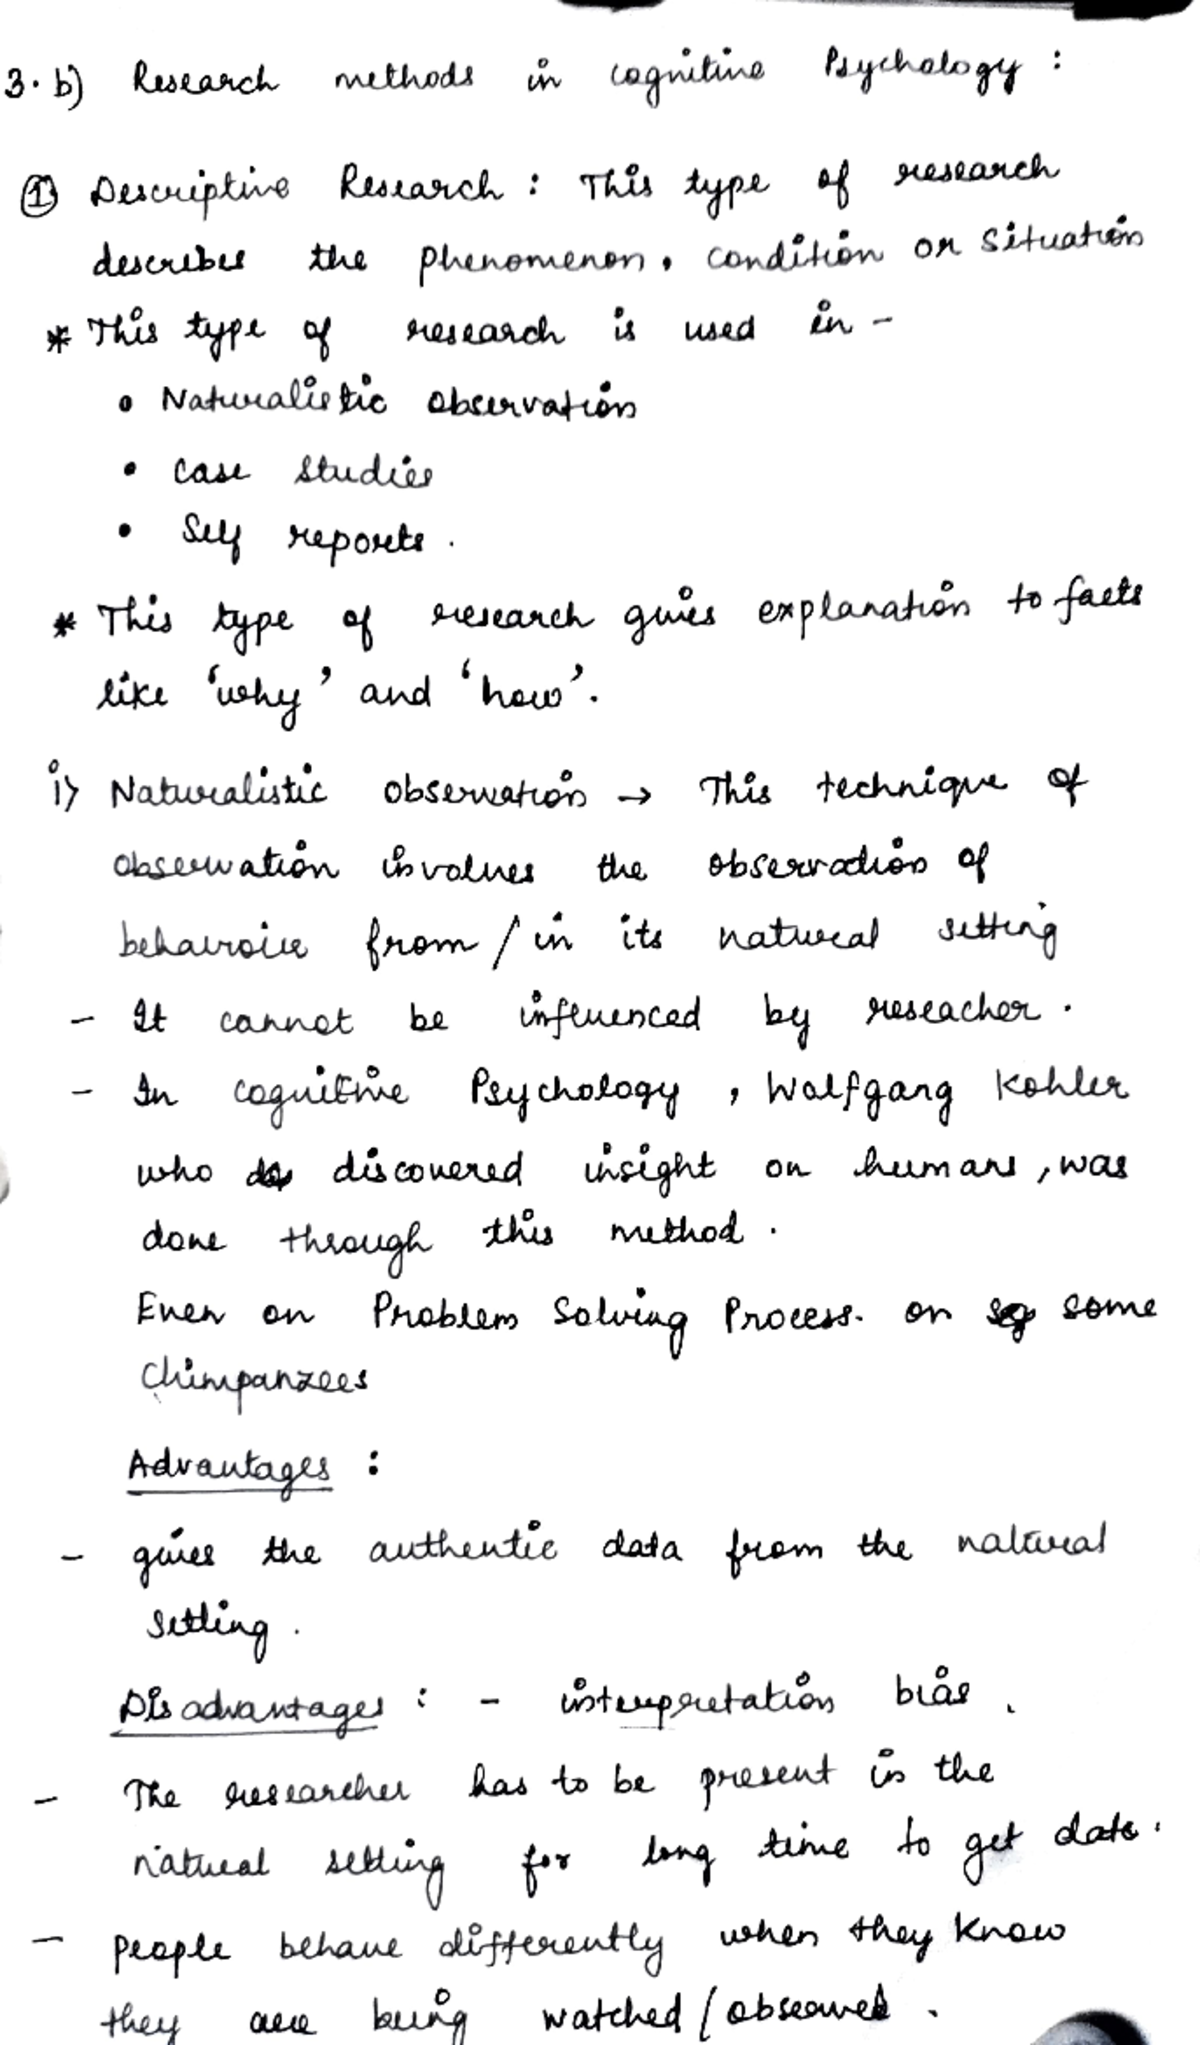 3. b) Research methods in cognitive Psychology :
① Descriptive Research : This type of research
describes the phenomenon, condition or situation
* This type of research is used in -
• Naturalistic observation
• case studies
• Self reports.
* This type of research gives explanation to facts
like 'why' and 'how'.
i> Naturalistic observation → This technique of
observation involves the observation of
behavroiur from / in its natural setting
- It cannot be influenced by reseacher.
- In cognitive Psychology, Wolfgang Kohler
who discovered insight on humans, was
done through this method.
Even on Problem Solving Process. on some
Chimpanzees
Advantages :
- gives the authentic data from the natural
setting.
Disadvantages : - interpretation bias.
- The researcher has to be present in the
natural setting for long time to get data.
- people behave differently when they know
they are being watched / observed.